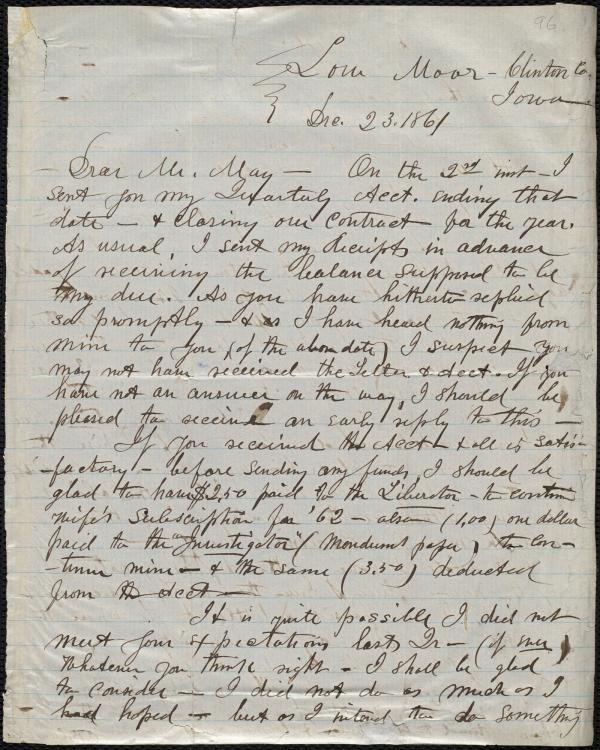 96
Low Moor - Clinton Co.
Iowa
Dec. 23. 1861
Dear Mr. May — On the 2nd inst - I
sent you my Quarterly Acct. ending that
date — & closing our contract for the year.
As usual, I sent my receipts in advance
of receiving the balance supposed to be
my due. As you have hitherto replied
so promptly — & as I have heard nothing from
mine to you, (of the above date) I suspect you
may not have received the letter & acct. If you
have not an answer on the way, I should be
pleased to receive an early reply to this —
If you received the Acct — & all is satis-
-factory — before sending any funds, I should be
glad to have $2,50 paid to the Liberator - to continue
wife's Subscription for '62 — also (1,00) one dollar
paid to the "Investigator" ( paper) to con-
-tinue mine — & the same (3.50) deducted
from the acct —
It is quite possible I did not
meet your expectations last Qr — (if so)
Whatever you think right - I shall be glad
to consider — I did not do as much as I
had hoped — but as I intend to do something